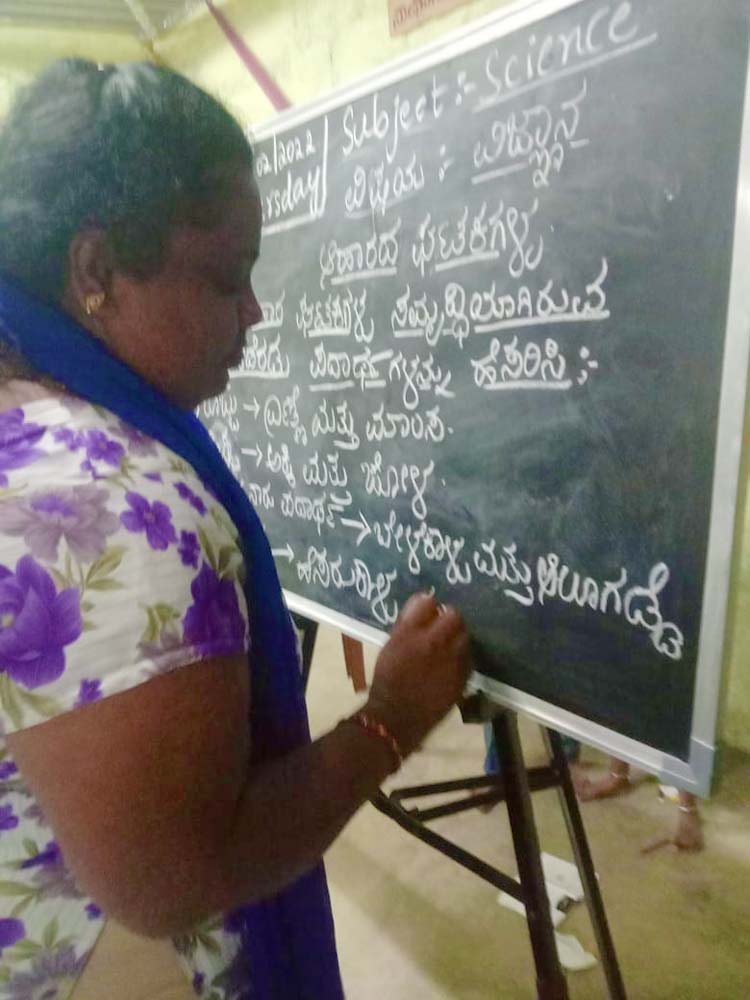 02/2022
Subject :- Science
rsday
ವಿಷಯ :- ವಿಜ್ಞಾನ
ಆಹಾರದ ಘಟಕಗಳು
ಘಟಕಗಳು ಸಮೃದ್ಧಿಯಾಗಿರುವ
ಪದಾರ್ಥಗಳನ್ನು ಹೆಸರಿಸಿ :-
→ ಎಣ್ಣೆ ಮತ್ತು ಮಾಂಸ.
→ ಅಕ್ಕಿ ಮತ್ತು ಜೋಳ.
ನಾರು ಪದಾರ್ಥ → ಬೇಳೆಕಾಳು ಮತ್ತು ಆಲೂಗಡ್ಡೆ
→ ಹೆಸರುಕಾಳು